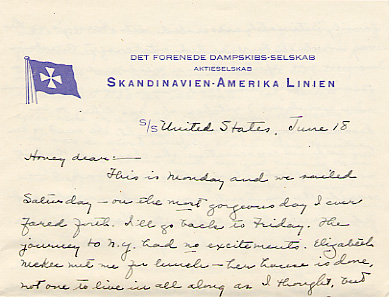 DET FORENEDE DAMPSKIBS-SELSKAB
AKTIESELSKAB
SKANDINAVIEN-AMERIKA LINIEN
S/S United States, June 18
Honey dear:—
This is Monday and we sailed
Saturday — on the most gorgeous day I ever
fared forth. I'll go back to Friday. The
journey to N.Y. had no excitements. Elizabeth
met me for lunch — her house is done,
not one to live in all along as I thought, but